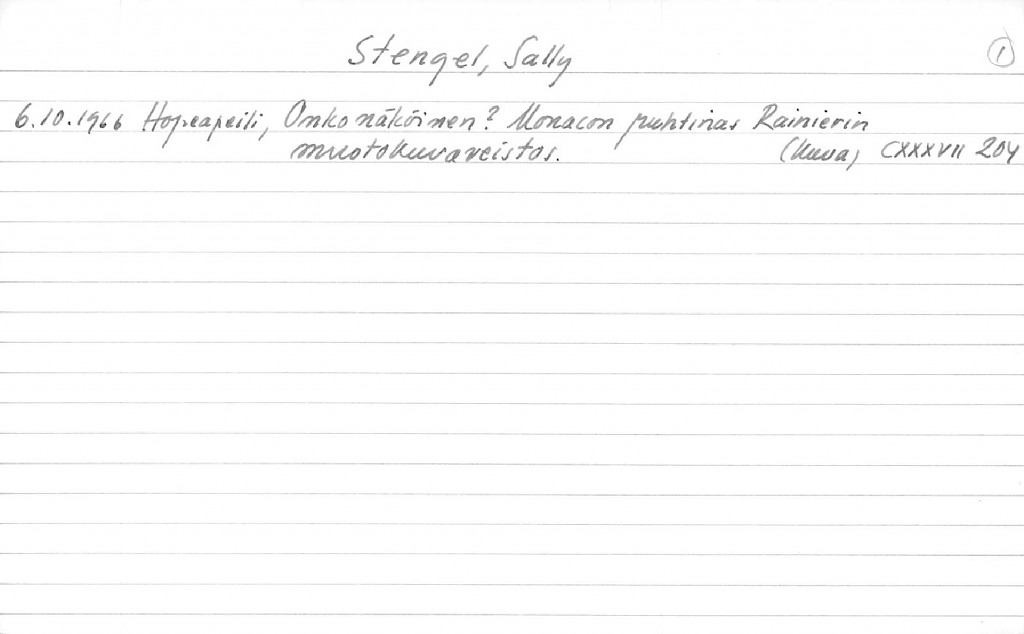 Stengel, Sally 1
6.10.1966 Hopeapeili, Onko näköinen? Monacon ruhtinas Rainierin
muotokuvaveistos. (kuva) CXXXVII 204